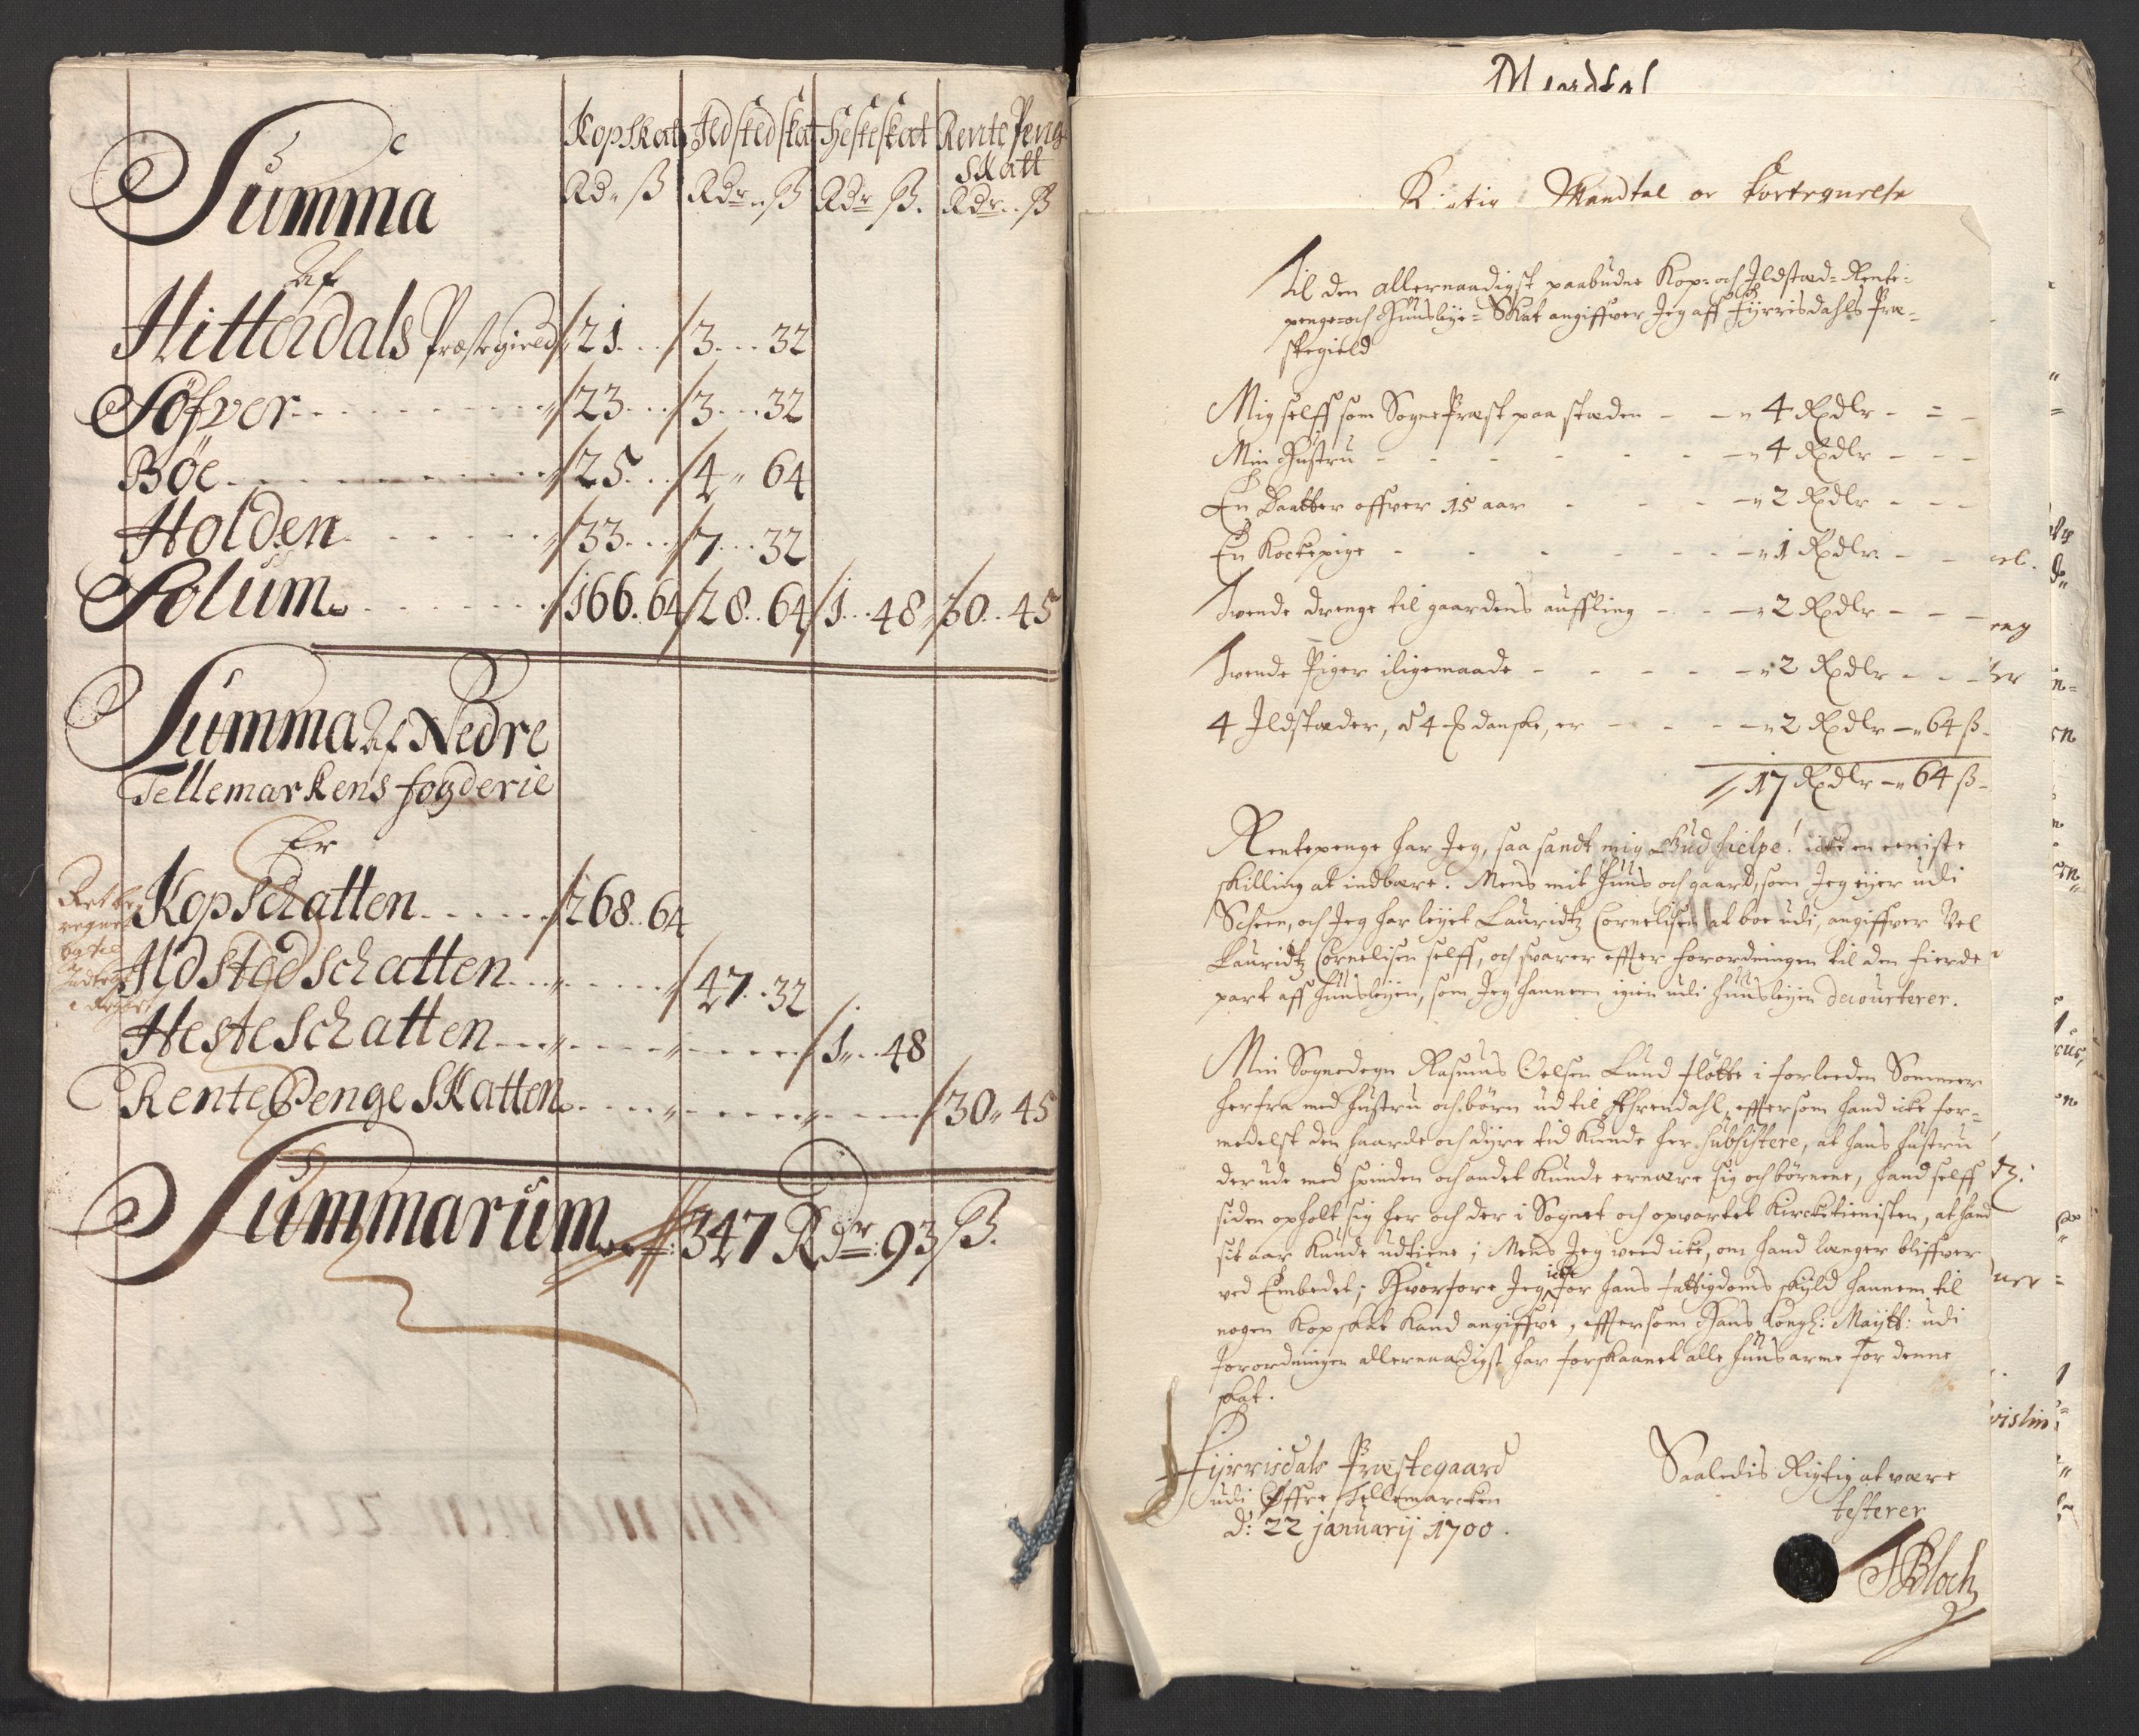 Kopskat Ildstedskat Hesteskat Rente Peng
Skatt
Rd. ß Rdr. ß Rdr ß. Rdr. ß
Summa
Af
Hitterdals Præstegield 21 3 32
Söfver 23 3 32
Böe 25 4 64
Holden 33 7 32
Solum 166. 64 28. 64 1. 48 30. 45
Summa Af Nedre
Tellemarkens fogderie
Er
Kopschatten 268. 64
Ildstedschatten 47. 32
Hesteschatten 1. 48
Rente Penge Skatten 30. 45
Summarum 347 Rdr: 93 ß.
Mandtal
Rigtig Mandtal
Til den allernaadigst paabudne Kop- och Ildstæd- Rente-
penge- och Huusleye- Skat angiffver Jeg aff Fyrrisdahls Præ-
stegield
Mig selff som SognePræst paa stæden - 4 Rxdlr
Min Hustru - 4 Rxdlr
En Daatter offver 15 aar - 2 Rxdlr
En Kockepige - 1 Rxdlr
Tvende drenge til gaardens auffling - 2 Rxdlr
Tvende Piger iligemaade - 2 Rxdlr
4 Ildstæder, à 4 danske, er - 2 Rxdlr - 64 ß
17 Rxdlr - 64 ß
Rentepenge har Jeg, saa sandt mig Gud hielpe! icke en eeniste
skilling at indbære. Mens mit Huus och gaard, som Jeg eyer udi
Scheen, och Jeg har leyet Lauridtz Cornelisen at boe udi, angiffver Vel
Lauridtz Cornelisen selff, och svarer effter forordningen til den fierde
part aff huusleyen, som Jeg hannem igien udi huusleyen decourterer.
Min Sognedegn Rasmus Oelsen Lund flötte i forleeden Sommer
herfra med hustru och börn ud til Ahrendahl, effersom hand icke for-
medelst den haarde och dyre tid kunde her subsistere, at hans hustru
derude med spinden och andet kunde ernære sig och börnene, hand selff
siden opholt sig her och der i Sognet och opvartet Kircketienisten, at hand
sit aar kunde udtiene; Mens Jeg veed icke, om hand længer bliffver
ved Embedet; Hvorfore Jeg icke for hans fattigdoms skyld hannem til
nogen Kopskat kand angiffve, effersom Hans Kongl: Maytt: udi
forordningen allernaadigst har forskaanet alle huusarme for denne
skat.
Fyrrisdals Præstegaard
udi Öffre Tellemarcken
d: 22 januarij 1700.
Saaledis Rigtig at være
testerer
Bloch